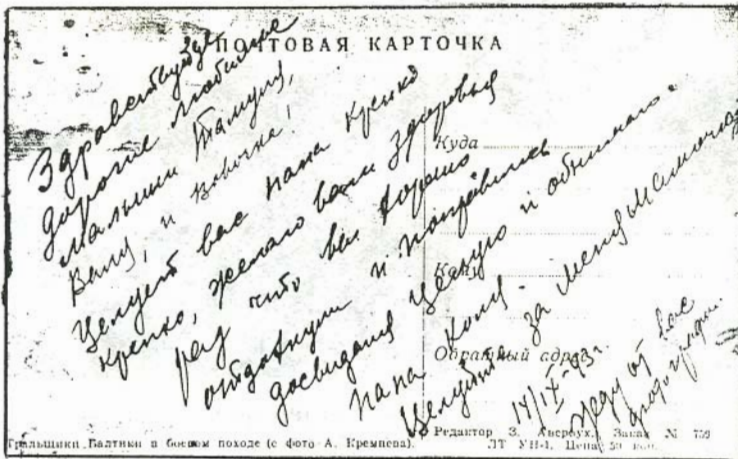 ПОЧТОВАЯ КАРТОЧКА
Здравствуйте
дорогие любимые
малыши Тамуся,
Вану, и Вовочка,
Целует вас папа крепко
крепко, желаю вам здоровья
рад что вы хорошо
отдохнули и поправились
досвидания Целую и обнимаю.
папа Колу.
Целуйте за меня мамочку
14/IX-43г.
жду от вас
фотографии.
Куда
Кому
Обратный адрес
Тральщики Балтики в боевом походе (с фото А. Кремнева).
Редактор З. Авербух. Заказ № 759
Цена 50 коп.